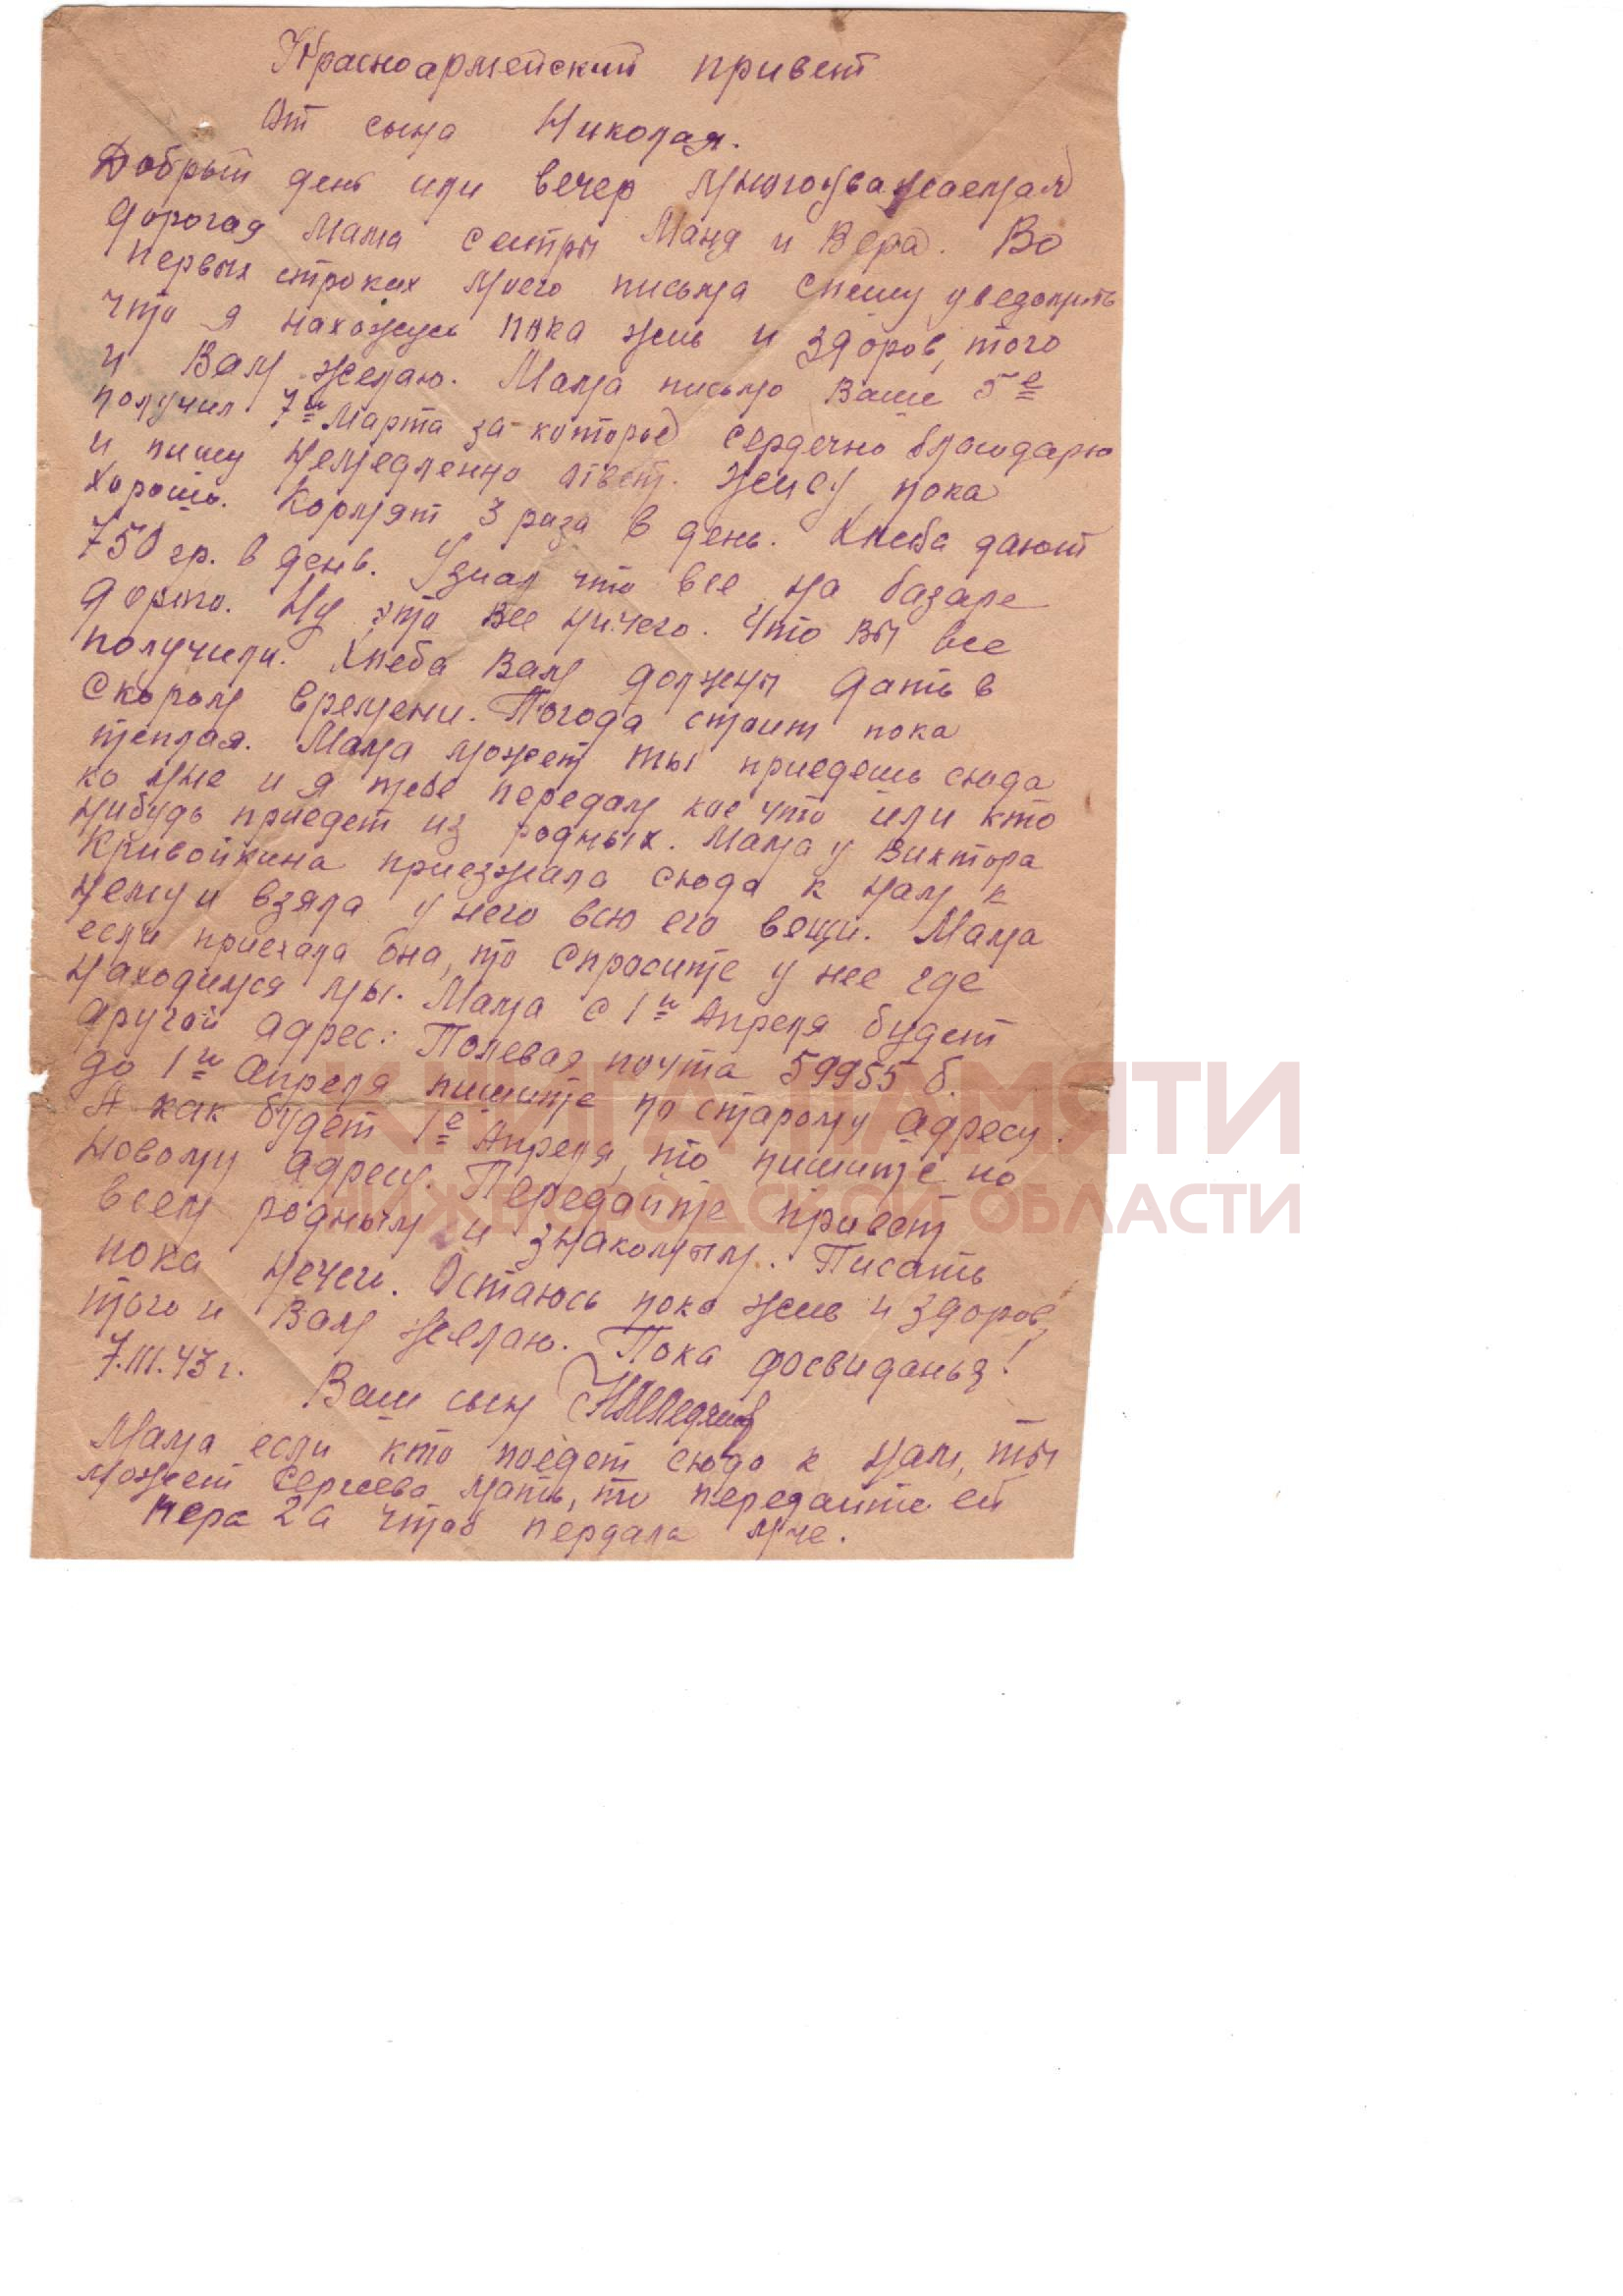 Красноармейский привет
От сына Николая.
Добрый день или вечер многоуважаемая
дорогая Мама сестры Маня и Вера. Во
первых строках моего письма спешу уведомить
что я нахожусь пока жив и здоров, того
и Вам желаю. Мама письмо Ваше 5е
получил 7и Марта за которые сердечно благодарю
и пишу немедленно ответ. Живу пока
хорошо. Кормят 3 раза в день. Хлеба дают
750 гр. в день. Узнал что все на базаре
дорого. Ну это все ничего. Что вы все
получили. Хлеба Вам должны дать в
скором времени. Погода стоит пока
теплая. Мама может ты приедешь сюда
ко мне и я тебе передам кое что или кто
нибудь приедет из родных. Мама у Виктора
Кривойкина приезжала сюда к нам к
нему и взяла у него всю его вещи. Мама
если приехала она, то спросите у нее где
находимся мы. Мама с 1и Апреля будет
другой адрес: Полевая почта 59955 б.
до 1и Апреля пишите по старому адресу.
А как будет 1е Апреля, то пишите по
новому адресу. Передайте привет
всем родным и знакомым. Писать
пока нечего. Остаюсь пока жив и здоров,
того и Вам желаю. Пока досвиданья!
7.III.43 г. Ваш сын
Мама если кто поедет сюда к нам, ты
может Сергеева мать, то передайте ей
пера 2а чтоб пердала мне.
КНИГА ПАМЯТИ
НИЖЕГОРОДСКОЙ ОБЛАСТИ